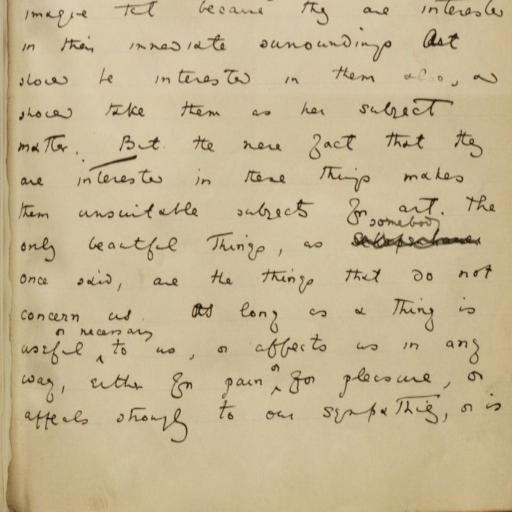 imagine that because they are interested
in their immediate surroundings Art
should be interested in them also, and
should take them as her subject
matter. But the mere fact that they
are interested in these things makes
them unsuitable subjects for art. The
only beautiful things, as somebody
once said, are the things that do not
concern us. As long as a thing is
useful or necessary to us, or affects us in any
way, either for pain or for pleasure, or
appeals strongly to our sympathies, or is